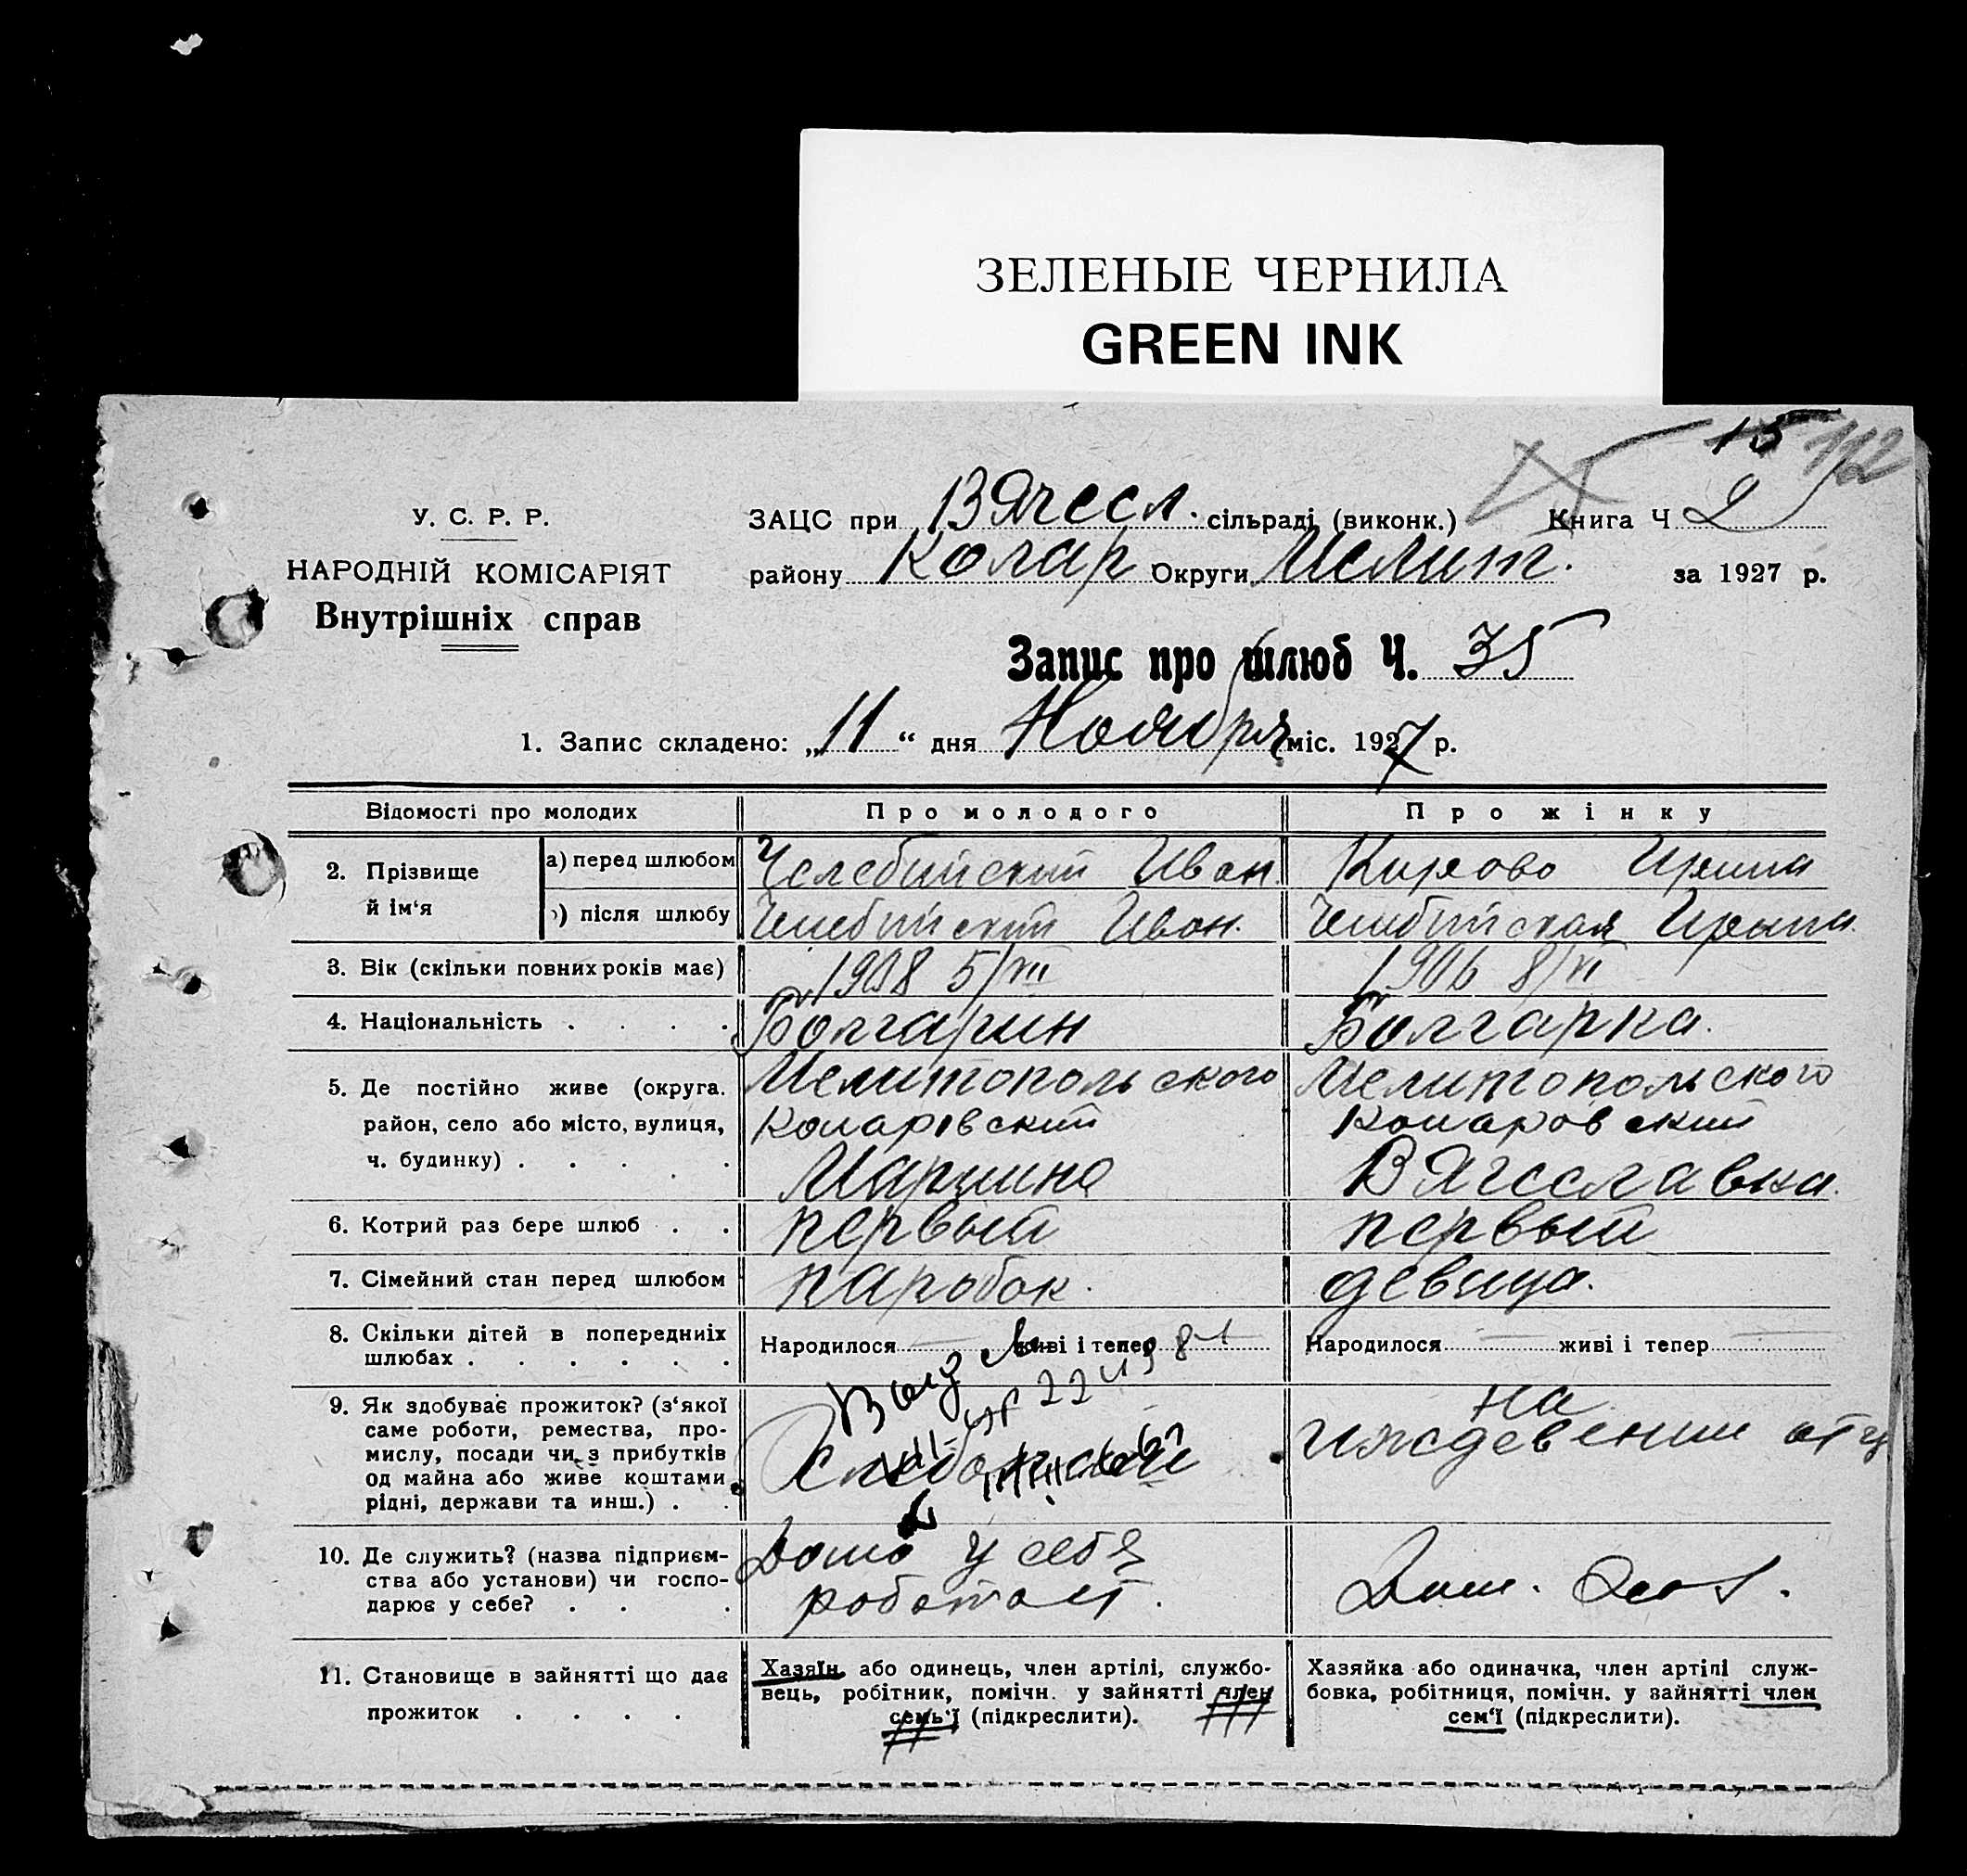 ЗЕЛЕНЫЕ ЧЕРНИЛА
GREEN INK
15 112
У. С. Р. Р.
НАРОДНІЙ КОМІСАРІЯТ
Внутрішніх справ
ЗАЦС при Вячесл. сільраді (виконк.) Книга Ч 2
району Колар Округи Мелит. за 1927 р.
Запис про шлюб Ч. 35
1. Запис складено: „11“ дня Ноября міс. 1927 р.
Відомості про молодих Про молодого Про жінку
2. Прізвище й ім‘я
а) перед шлюбом Челебийский Иван. Кирово Ирина
) після шлюбу Челебийский Иван. Челебийская Ирина.
3. Вік (скільки повних років має) 1908 5/VII 1906 8/VI
4. Національність . . . . Болгарин Болгарка.
5. Де постійно живе (округа. Мелитопольского Мелитопольского
район, село або місто, вулиця, Коларівский Коларовский
ч. будинку) . . . . Марино Вячеславка.
6. Котрий раз бере шлюб . . первый первый
7. Сімейний стан перед шлюбом паробок. девица.
8. Скільки дітей в попередниіх Народилося живі і тепер Народилося живі і тепер
шлюбах . . . . . .
9. Як здобуває прожиток? (з‘якої на
саме роботи, ремества, про- иждевении отц
мислу, посади чи з прибутків
од майна або живе коштами
рідні, держави та инш.) . .
10. Де служить? (назва підприєм- Дома у себя
ства або установи) чи госпо- работает. Дом. хоз.
дарює у себе? . . .
11. Становище в зайнятті що дає
прожиток . . . .
Хазяїн або одинець, член артілі, службо-
вець, робітник, помічн. у зайнятті член
семь‘ї (підкреслити).
Хазяйка або одиначка, член артілі служ-
бовка, робітниця, помічн. у зайнятті член
сем‘ї (підкреслити).